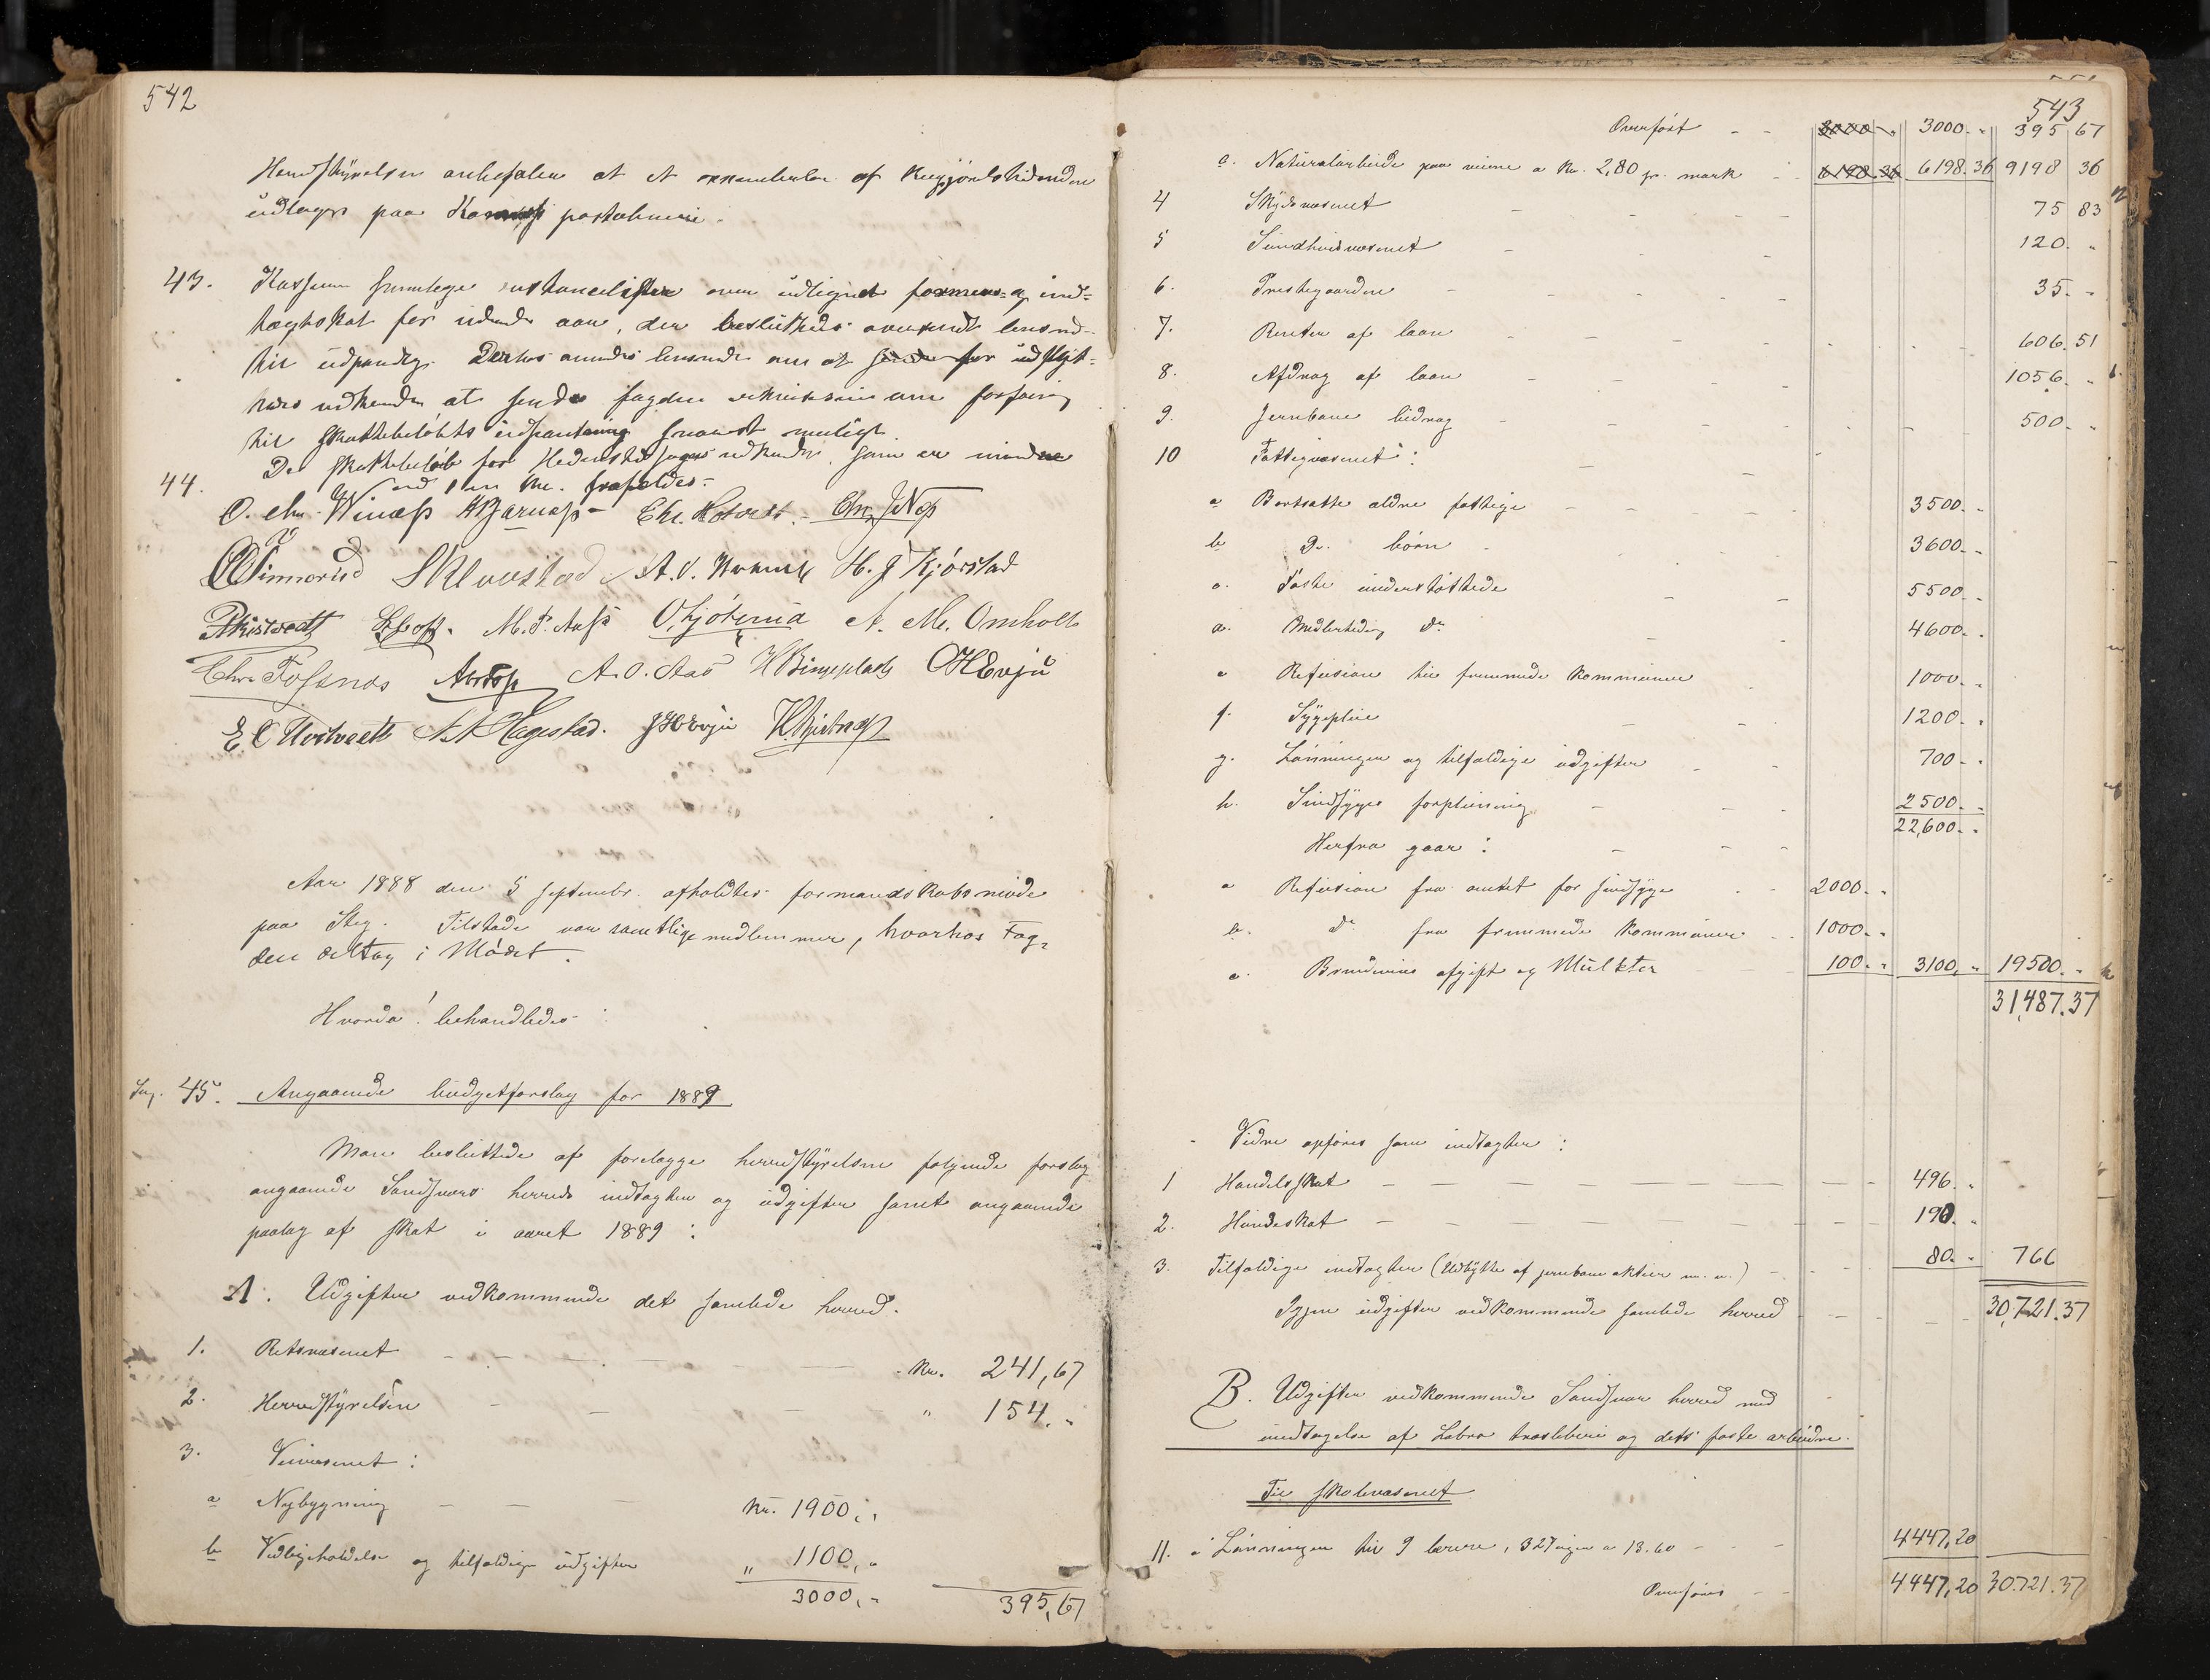 542
Herredstyrelsen anbefaler at et exemplar af Kundgjørelsestidenden
udlægges paa postaabneri.
43. Kasseren fremlægger restanceliste over udlignet formues- og ind=
tægtsskat for inde aar, der besluttedes oversendt lensmd.
til udpantning. Derhos anmodes lensmd om at for udflyt=
teres vedkommende at sende fogden om forføining
til skattebeløbets udpantning snarest muligt.
44. De skattebeløb for Hedenstad sogns vedkomde, som er mindre
end 1 en kr. frafaldes.
O. Chr. Winæss HBjarnæss Chr. Hotvedt. Chr. JNøs
OVinnorud SKlovstad A. O. H. J Kjørstad
M. P. Aass O, Kjøtenia A. Me. Omholt
Chr Fossnøs A. O. Aas HBingeplads OHEvju
E. C Hvitvedt A. A Hegestad. JHEvju
Aar 1888 den 5 septembr. afholdtes formandskabsmøde
paa Steg. Tilstede var samtlige medlemmer, hvorhos Fog=
den deltog i Mødet.
Hvorda! behandledes:
Sag. 45. Angaaende budgetforslag for 1889
Man besluttede at forelægge herredstyrelsen følgende forslag
angaaende Sandsværs herreds indtægter og udgifter samt angaaende
paalæg af skat i aaret 1889:
A. Udgifter vedkommende det samlede herred.
1. Retsvæsenet - - - - kr. 241,67
2. Herredstyrelsen - - - " 154. "
3. Veivæsenet:
a Nybygning - - - kr. 1900. "
b Vedligeholdelse og tilfældige udgifter " 1100, "
3000, " 395,67
543
Overført - - 3000. " 3000. " 395 67
c. Naturalarbeide paa veiene a kr. 2,80 pr. mark - 6198.36 6198.36 9198 36
4 Skydsvæsenet - - - - 75 83
5 Sundhedsvæsenet - - - 120. "
6. Prestegaarden - - - - 35. "
7. Renter af laan - - - - 606.51
8. Afdrag af laan - - - - 1056. "
9. Jernbane bidrag - - - - 500. "
10 Fattigvæsenet: - - -
a Bortsatte ældre fattige - - - 3500. "
b Do. børn - 3600. "
c. Faste understøttede - - 5500. "
d. Midlertidig do - - 4600. "
e Refusion til fremmede kommuner - 1000. "
f. Sygepleie - - 1200. "
g. Lønninger og tilfældige udgifter - - 700. "
h. Sindsyges forpleining - - - 2500. "
22,600. "
Herfra gaar: - - -
a Refusion fra amtet for sindsyge - - 2000. "
b. do fra fremmede kommuner - - 1000. "
c. Brændevins afgift og Mulkter - - 100. " 3100, " 19500. "
31,487.37
Videre opføres som indtægter:
1 Handelsskat - - - - 496. "
2. Hundeskat - - - - 190. "
3. Tilfældige indtægter (Udbytte af jernbane aktier m. v.) - - 80. " 766
Igjen udgifter vedkommende samlede herred - - - 30,721.37
B. Udgifter vedkommende Sandsvær herred med
undtagelse af Labro træsliberi og dets faste arbeidere.
Til skolevæsenet
11. a Lønninger til 9 lærere, 327 uger a 13.60 - - - 4447,20
Overføres - - 4447,20 30.721.37